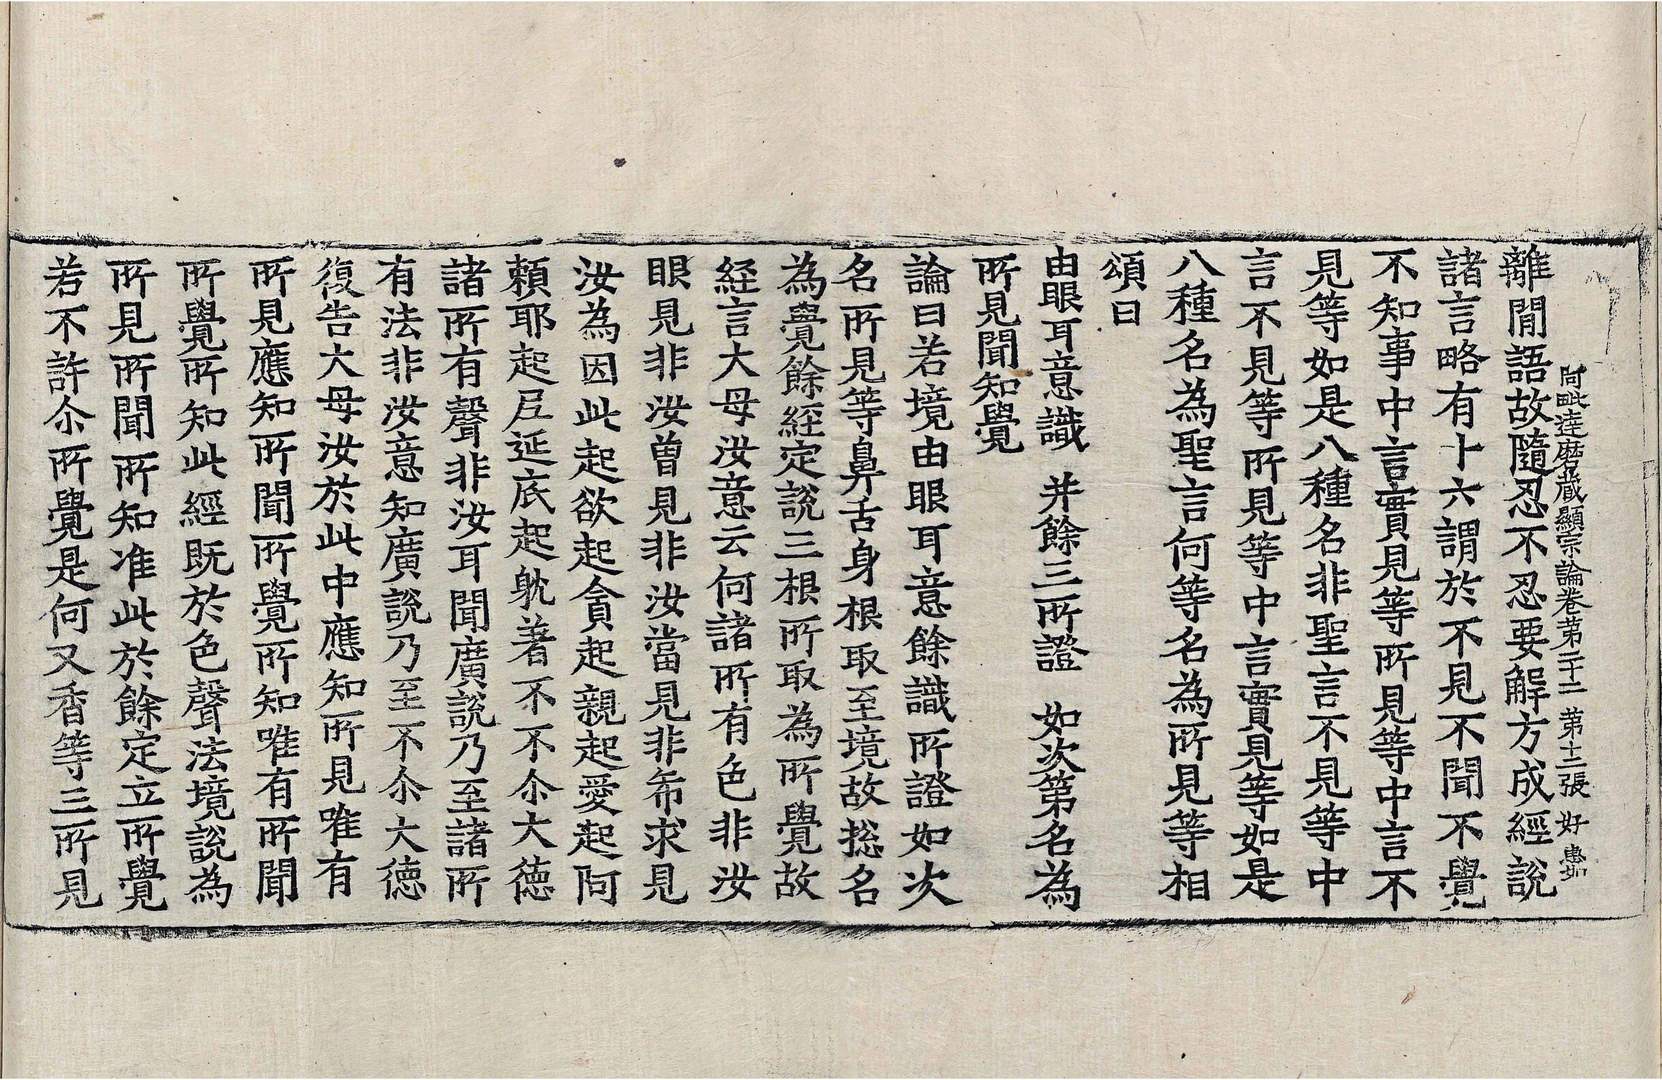 阿毗達磨藏顯宗論卷第二十二 第十二張 好
離間語故隨忍不忍要解方成經說
諸言略有十六謂於不見不聞不覺
不知事中言實見等所見等中言不
見等如是八種名非聖言不見等中
言不見等所見等中言實見等如是
八種名為聖言何等名為所見等相
頌曰
由眼耳意識 并餘三所證 如次第名為
所見聞知覺
論曰若境由眼耳意餘識所證如次
名所見等鼻舌身根取至境故捴名
為覺餘経定說三根所取為所覺故
経言大母汝意云何諸所有色非汝
眼見非汝曾見非汝當見非希求見
汝為因此起欲起貪起親起愛起阿
頼耶起尼延底起躭著不不尒大德
諸所有聲非汝耳聞廣說乃至諸所
有法非汝意知廣說乃至不尒大德
復告大母汝於此中應知所見唯有
所見應知所聞所覺所知唯有所聞
所覺所知此經既於色聲法境說為
所見所聞所知准此於餘定立所覺
若不許尒所覺是何又香等三所見